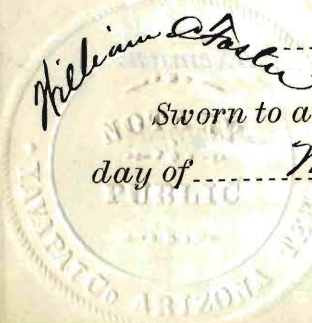 William C Foster
Sworn to a
day of
NOTARY
PUBLIC
YAVAPAI CO ARIZONA TER